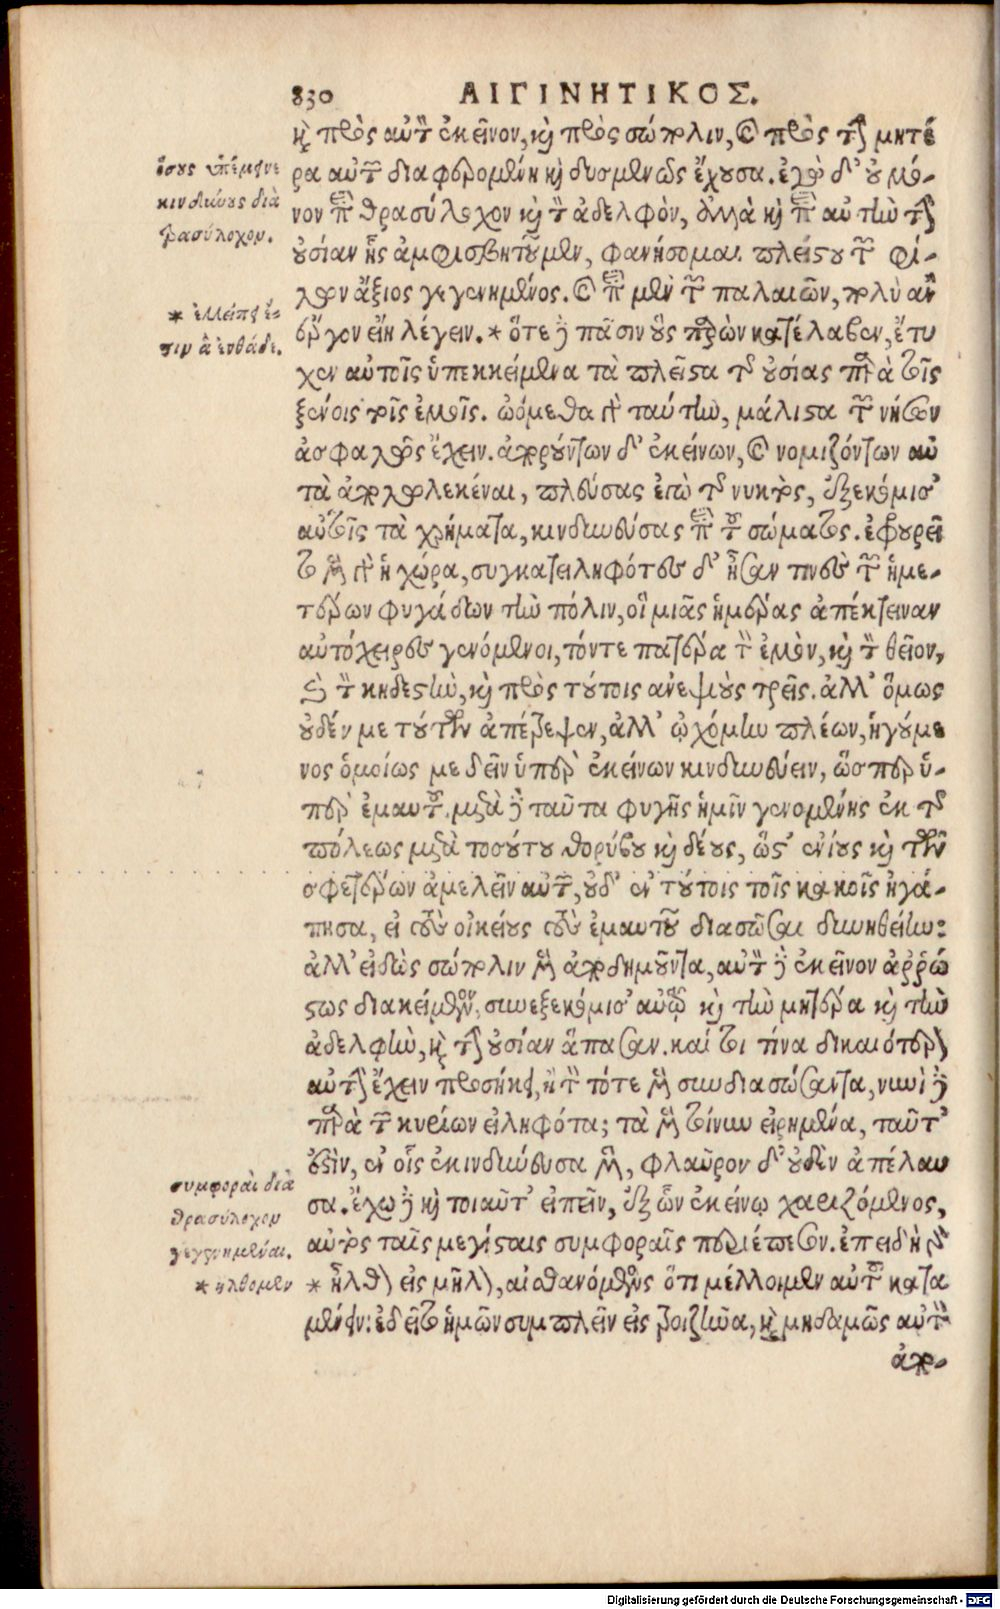 830 ΑΙΓΙΝΗΤΙΚΟΣ.
καὶ πρὸς αὐτὸν ἐκεῖνον, καὶ πρὸς σώπολιν, καὶ πρὸς τὴν μητέ
ρα αὐτῶν διαφερομένη καὶ δυσμενῶς ἔχουσα. ἐγὼ δ' οὐ μό-
νον περὶ θρασύλοχον καὶ τὸν ἀδελφὸν, ἀλλὰ καὶ περὶ αὐτὴν τὴν
οὐσίαν ἧς ἀμφισβητοῦμεν, φανήσομαι πλείστου τῶν φί-
λων ἄξιος γεγενημένος. καὶ περὶ μὲν τῶν παλαιῶν, πολὺ ἂν
ἔργον εἴη λέγειν. * ὅτε δὲ πασῖνους πάρων κατέλαβεν, ἔτυ
χεν αὐτοῖς ὑπεκκείμενα τὰ πλεῖστα τῆς οὐσίας παρὰ τοῖς
ξένοις τοῖς ἐμοῖς. ᾠόμεθα γὰρ ταύτην, μάλιστα τῶν νήσων
ἀσφαλῶς ἔχειν. ἀπορούντων δ' ἐκείνων, καὶ νομιζόντων αὐ
τὰ ἀπολωλεκέναι, πλεύσας ἐγὼ τῆς νυκτὸς, ἐξεκόμισ'
αὐτοῖς τὰ χρήματα, κινδυνεύσας περὶ τοῦ σώματος. ἐφρουρεῖ
το μὲν γὰρ ἡ χώρα, συγκατειληφότες δ' ἦσάν τινες τῶν ἡμε-
τέρων φυγάδων τὴν πόλιν, οἳ μιᾶς ἡμέρας ἀπέκτειναν
αὐτόχειρες γενόμενοι, τόν τε πατέρα τὸν ἐμὸν, καὶ τὸν θεῖον,
καὶ τὸν κηδεστὴν, καὶ πρὸς τούτοις ἀνεψιοὺς τρεῖς. ἀλλ' ὅμως
οὐδέν με τούτων ἀπέτρεψεν, ἀλλ' ᾠχόμην πλέων, ἡγούμε
νος ὁμοίως με δεῖν ὑπὲρ ἐκείνων κινδυνεύειν, ὥσπερ ὑ-
πὲρ ἐμαυτοῦ. μετὰ δὲ ταῦτα φυγῆς ἡμῖν γενομένης ἐκ τῆς
πόλεως μετὰ τοσούτου θορύβου καὶ δέους, ὥστ' ἐνίους καὶ τῶν
σφετέρων ἀμελεῖν αὐτῶν, οὐδ' ἐν τούτοις τοῖς κακοῖς ἠγά-
πησα, εἰ τοὺς οἰκείους τοὺς ἐμαυτοῦ διασῶσαι δυνηθείην:
ἀλλ' εἰδὼς σώπολιν μὲν ἀποδημοῦντα, αὐτὸν δὲ ἐκεῖνον ἀῤῥώ
στως διακείμενον, συνεξεκόμισ' αὐτῷ καὶ τὴν μητέρα καὶ τὴν
ἀδελφὴν, καὶ τὴν οὐσίαν ἅπασαν. καί τοι τίνα δικαιότερον
αὐτὴν ἔχειν προσήκει, ἢ τὸν τότε μὲν συνδιασώσαντα, νυνὶ δὲ
παρὰ τῶν κυρίων εἰληφότα; τὰ μὲν τοίνυν εἰρημένα, ταῦτ'
ἐστὶν, ἐν οἷς ἐκινδύνευσα μὲν, φλαῦρον δ' οὐδὲν ἀπέλαυ
σα. ἔχω δὲ καὶ τοιαῦτ' εἰπεῖν, ἐξ ὧν ἐκείνῳ χαριζόμενος,
αὐτὸς ταῖς μεγίσταις συμφοραῖς περιέπεσον. ἐπειδὴ γὰρ
* ἦλθον εἰς μῆλον, αἰσθανόμενος ὅτι μέλλοιμεν αὐτοῦ κατα
μένειν: ἐδεῖτο ἡμῶν συμπλεῖν εἰς τροιζῆνα, καὶ μηδαμῶς αὐτὸν
ἀπο-
ὅσους ὑπέμεινε
κινδύνους διὰ
θρασύλοχον.
* ἐλλείπειν ἔ-
τιν ἃ ἐνθάδε.
συμφοραὶ διὰ
θρασύλοχον
γεγενημέναι.
* ἤλθομεν
Digitalisierung gefördert durch die Deutsche Forschungsgemeinschaft - DFG